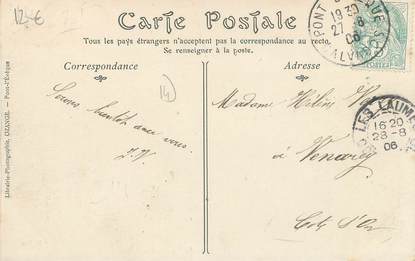 12.€
Carte Postale
Tous les pays étrangers n'acceptent pas la correspondance au recto.
Se renseigner à la poste.
Correspondance
Adresse
14
Serons bientôt avec vous.
Madame Hélène
à Venarey
Côte d'Or
PONT
19 30
27 -8
06
LES LAUMES
16 20
28 -8
06
Librairie-Photographie, OZANGE. - Pont-l'Évêque